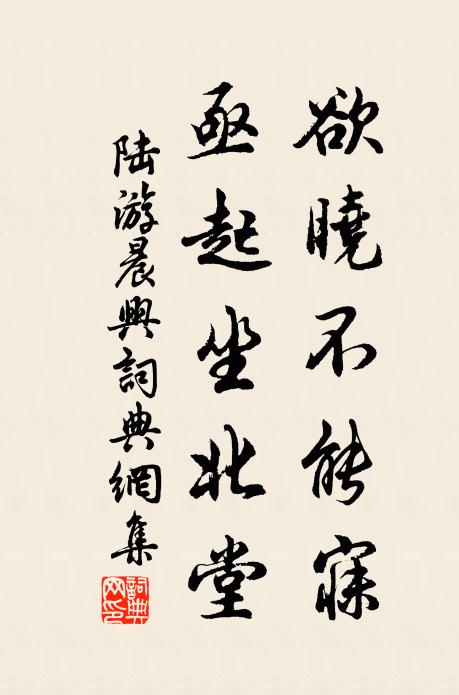 欲曉不能寐
亟起坐北堂
陸游晨興詞典網集
詞典網印